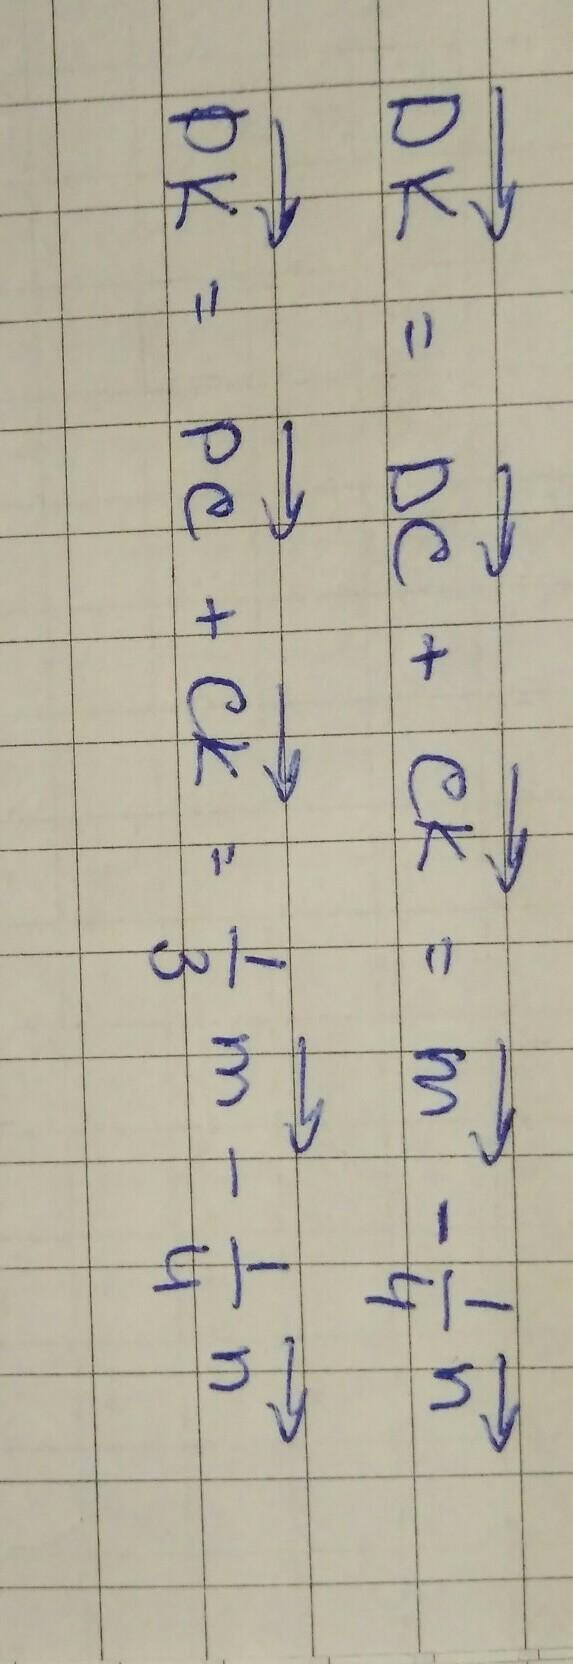 DK→ = DC→ + CK→ = m→ - 1/4 n→
PK→ = PC→ + CK→ = 1/3 m→ - 1/4 n→